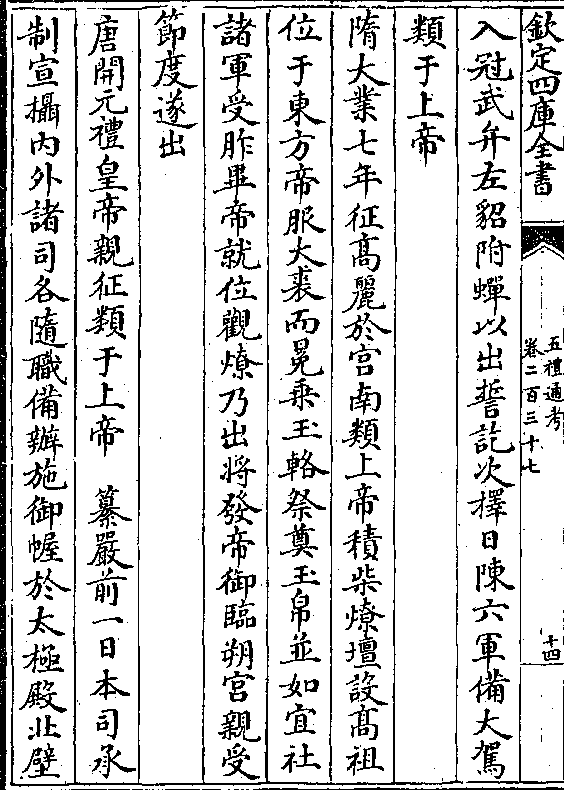 欽定四庫全書
五禮通考
卷二百三十七
十四
入冠武弁左貂附蟬以出誓訖次擇日陳六軍備大駕
類于上帝
隋大業七年征髙麗於宫南類上帝積柴燎壇設髙祖
位于東方帝服大裘而冕乘玉輅祭奠玉帛並如宜社
諸軍受胙畢帝就位觀燎乃出將發帝御臨朔宫親受
節度遂出
唐開元禮皇帝親征類于上帝 纂嚴前一日本司承
制宣攝内外諸司各隨職備辦施御幄於太極殿北壁